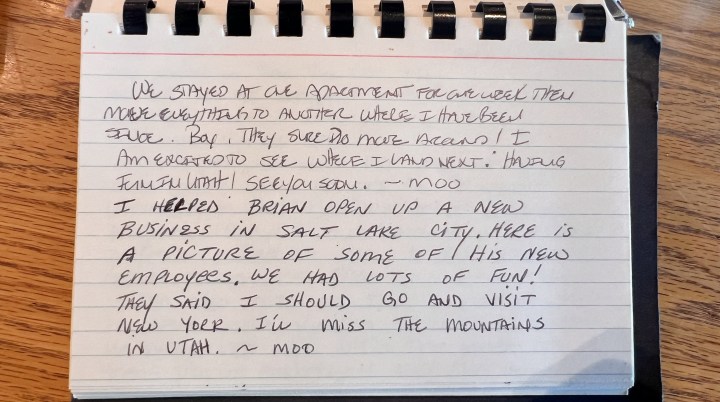 WE STAYED AT ONE APARTMENT FOR ONE WEEK THEN
MOVE EVERYTHING TO ANOTHER WHERE I HAVE BEEN
SINCE. BOY, THEY SURE DO MOVE AROUND! I
AM EXCITED TO SEE WHERE I LAND NEXT. HAVING
FUN IN UTAH! SEE YOU SOON. ~ MOO
I HELPED BRIAN OPEN UP A NEW
BUSINESS IN SALT LAKE CITY. HERE IS
A PICTURE OF SOME OF HIS NEW
EMPLOYEES. WE HAD LOTS OF FUN!
THEY SAID I SHOULD GO AND VISIT
NEW YORK. I'LL MISS THE MOUNTAINS
IN UTAH. ~ MOO